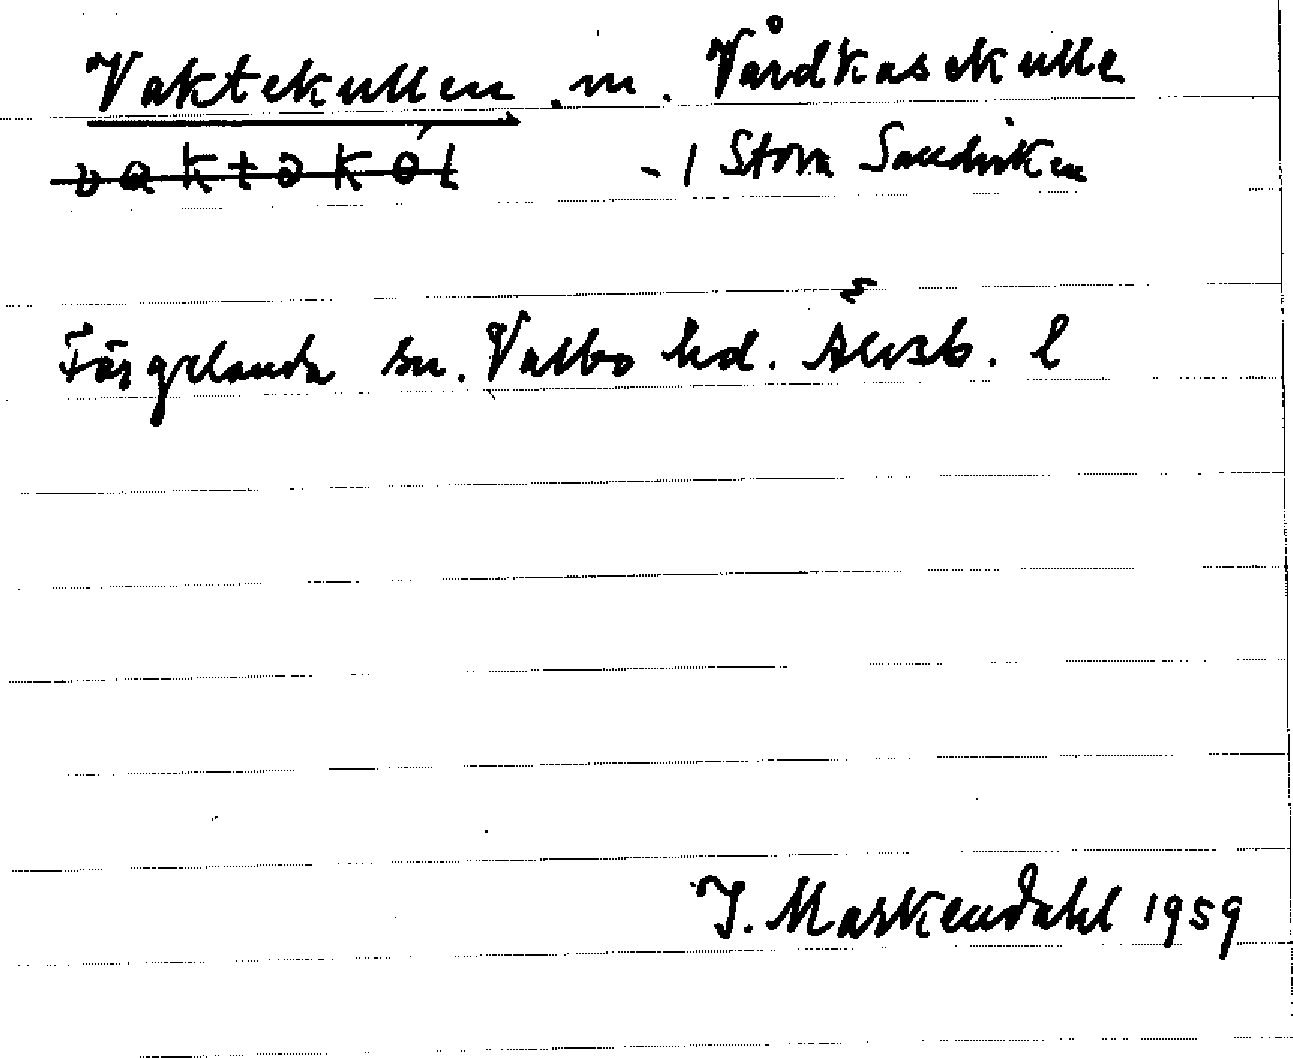 Vaktekullen . m. Vårdkasekulle
vaktəkól - I Stora Sandviken
Färgelanda sn. Valbo hd. Älvsb. l
I. Markendahl 1959